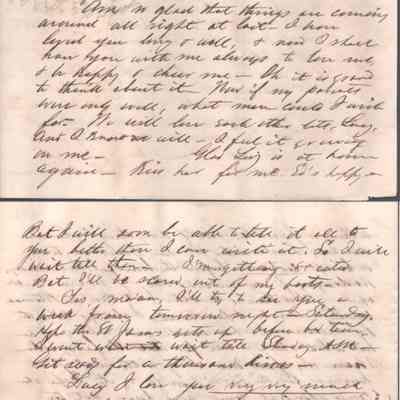 Am so glad that things are coming
around all right at last - I have
loved you long & well, & now I shall
have you with me always to love me,
& be happy & cheer me - Oh it is good
to think about it - Now if my patients
were only well, what more could I wish
for. We will love each other lots, Lucy,
And I know we will - I feel it growing
on me - Glad Liz is at home
again - Kiss her for me. So happy
But I will soon be able to tell it all to
you better than I can write it. So I will
wait till then - I'm getting
But I'll be out of my boots -
Yes, ma'am, I'll try to see you a
week from tomorrow night - Saturday.
the St James before
I want wait till Sunday
Get for a thousand kisses -
Lucy I love you very very much